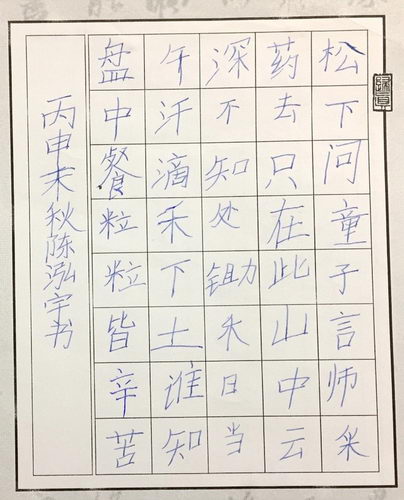 松下问童子言师采
药去只在此山中云
深不知处锄禾日当
午汗滴禾下土谁知
盘中餐粒粒皆辛苦
丙申末秋陈泓宇书